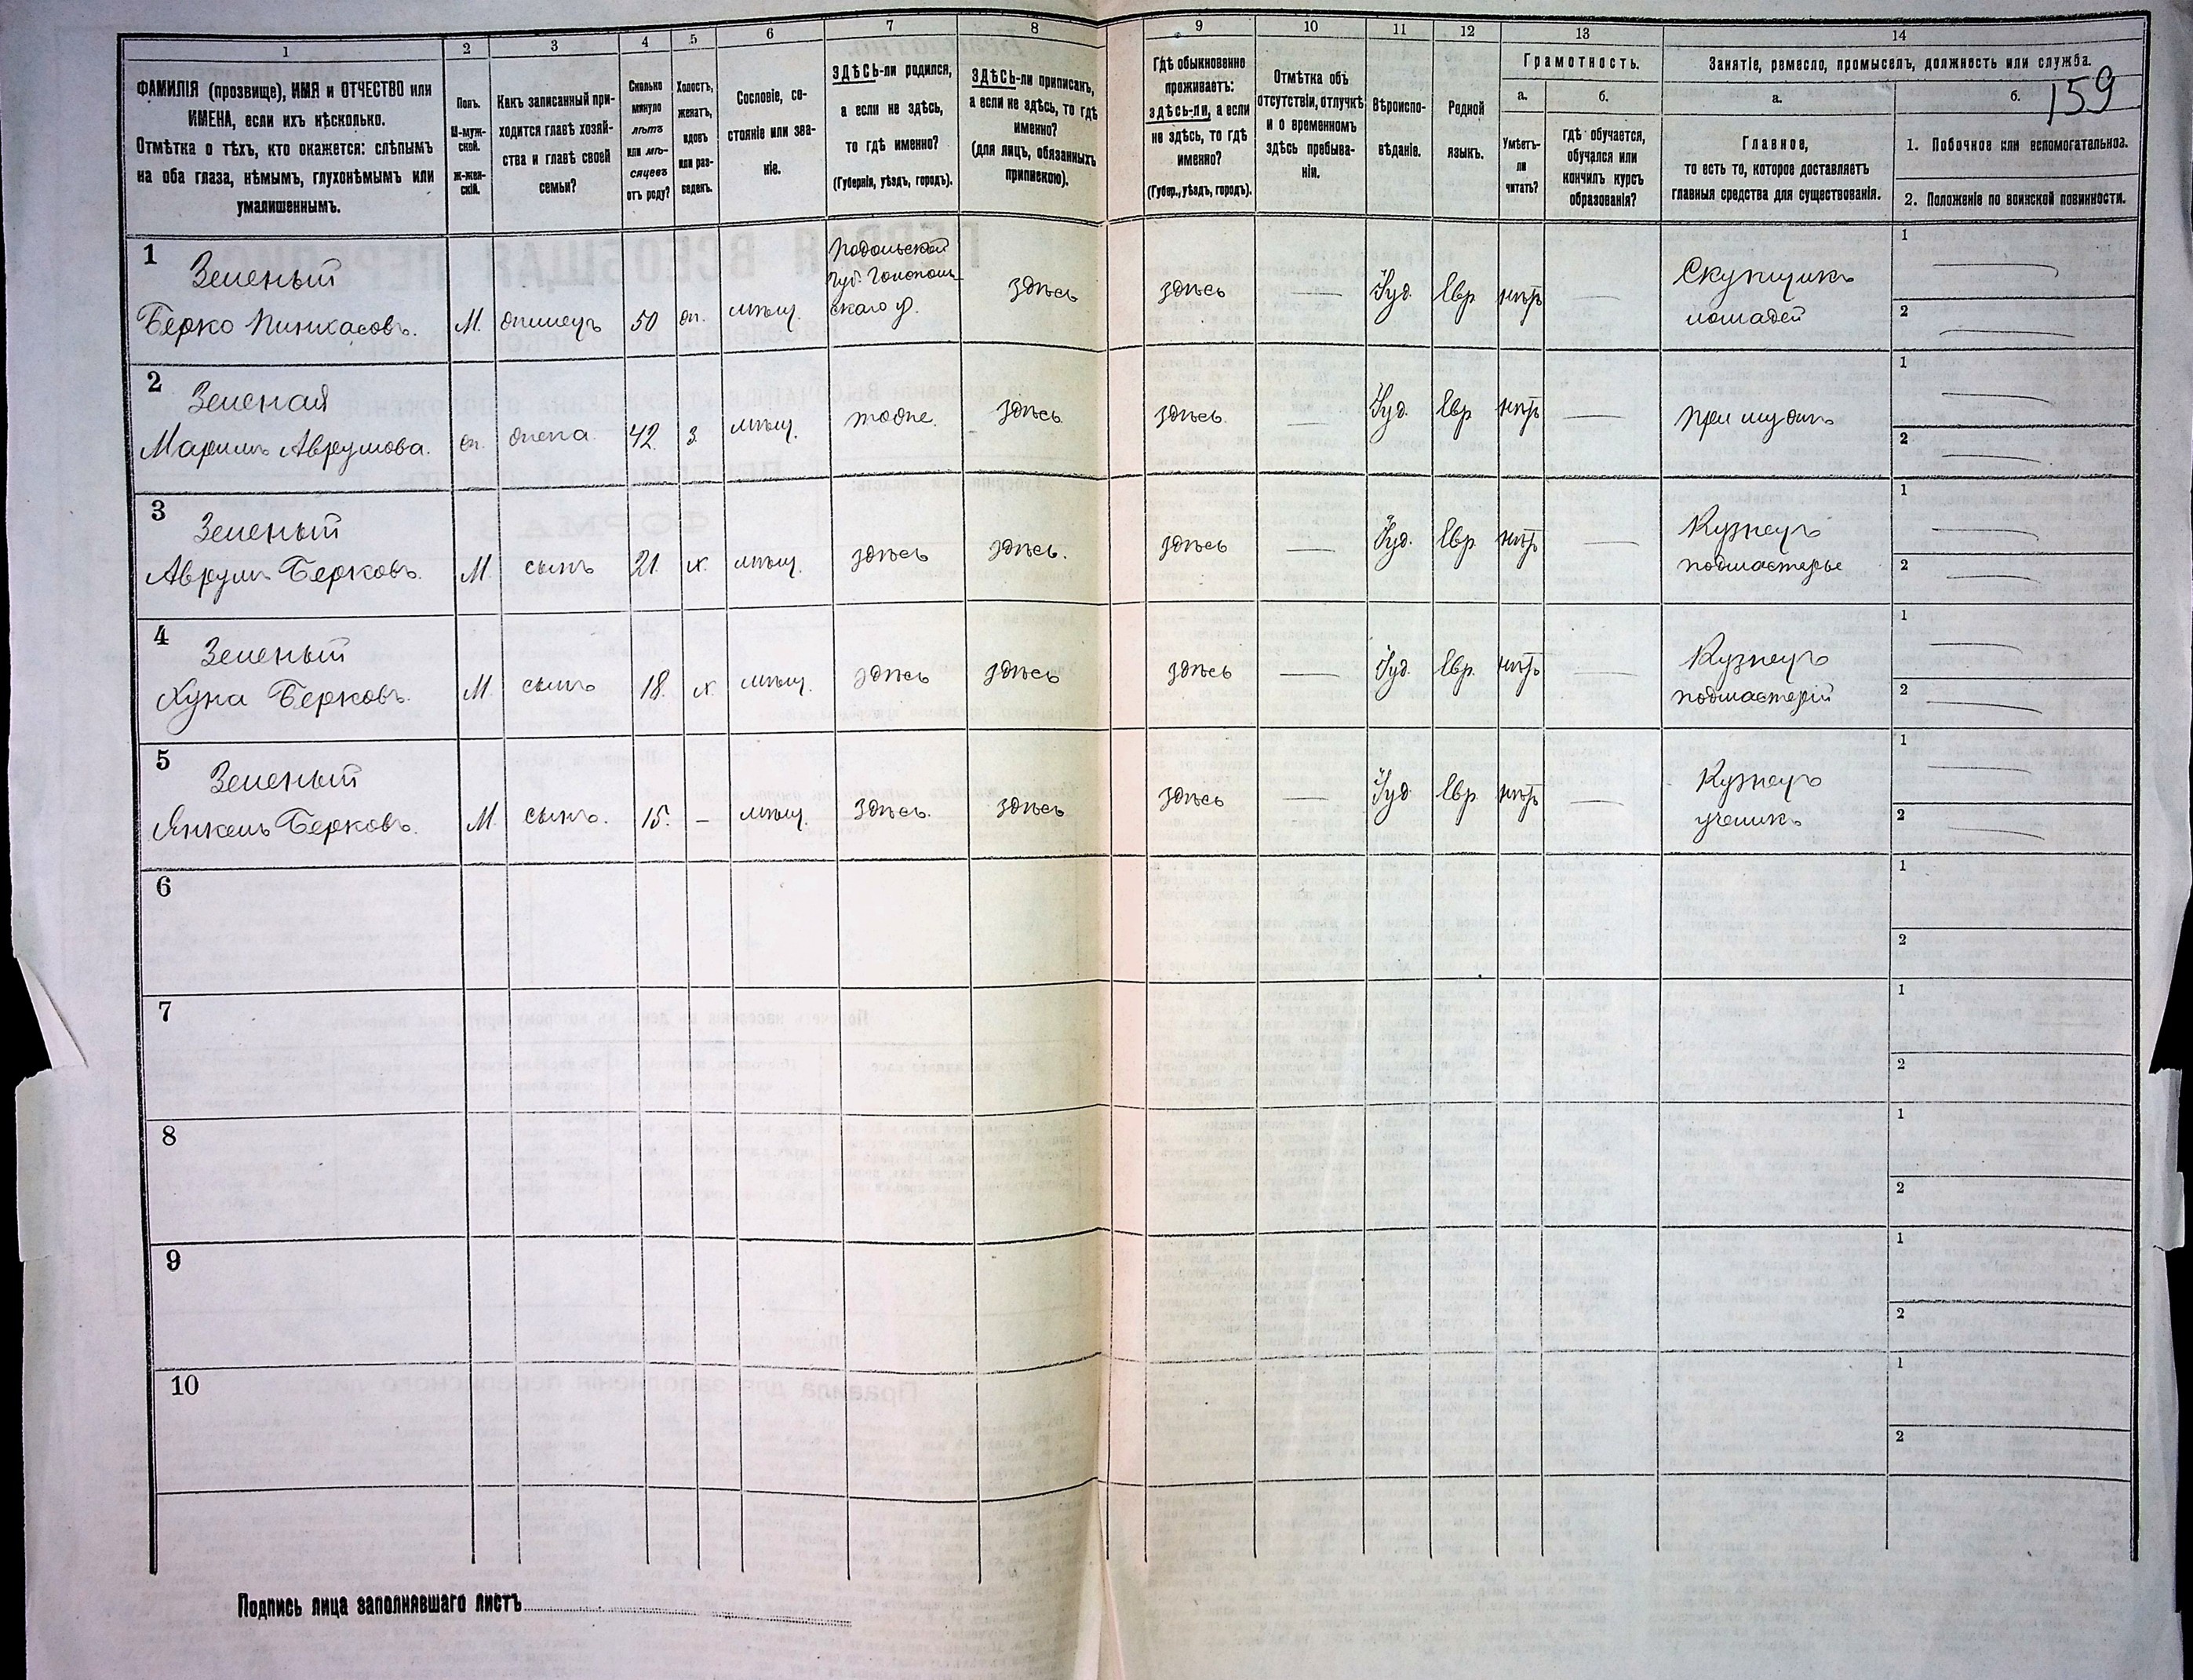 1 2 3 4 5 6 7 8 9 10 11 12 13 14
159
ФАМИЛІЯ (прозвище), ИМЯ и ОТЧЕСТВО или
ИМЕНА, если ихъ нѣсколько.
Отмѣтка о тѣхъ, кто окажется: слѣпымъ
на оба глаза, нѣмымъ, глухонѣмымъ или
умалишеннымъ.
Полъ.
М-муж-
ской.
Ж-жен-
скій.
Какъ записанный при-
ходится главѣ хозяй-
ства и главѣ своей
семьи?
Сколько
минуло
лѣтъ
или мѣ-
сяцевъ
отъ роду?
Холостъ,
женатъ,
вдовъ
или раз-
веденъ.
Сословіе, со-
стояніе или зва-
ніе.
ЗДѢСЬ-ли родился,
а если не здѣсь,
то гдѣ именно?
(Губернія, уѣздъ, городъ).
ЗДѢСЬ-ли приписанъ,
а если не здѣсь, то гдѣ
именно?
(для лицъ, обязанныхъ
припискою).
Гдѣ обыкновенно
проживаетъ:
здѣсь-ли, а если
не здѣсь, то гдѣ
именно?
(Губер., уѣздъ, городъ).
Отмѣтка объ
отсутствіи, отлучкѣ
и о временномъ
здѣсь пребыва-
ніи.
Вѣроиспо-
вѣданіе.
Родной
языкъ.
Грамотность.
а.
Умѣетъ-
ли
читать?
б.
Гдѣ обучается,
обучался или
кончилъ курсъ
образованія?
Занятіе, ремесло, промыселъ, должность или служба.
а.
Главное,
то есть то, которое доставляетъ
главныя средства для существованія.
б.
1. Побочное или вспомогательное.
2. Положеніе по воинской повинности.
1
Зеленый
Берко Пинкасовъ. М. 50 мѣщ.
Подольской
губ.
скаго у.
здѣсь здѣсь — Іуд. Евр нѣтъ —
Скупщикъ
лошадей
1 —
2 —
2
Зеленая
Маримъ Аврумова. жена. 42. з. мѣщ. тоже. здѣсь здѣсь — Іуд. Евр нѣтъ — при мужѣ
1 —
2 —
3
Зеленый
Аврумъ Берковъ. М. сынъ 21. х. мѣщ. здѣсь здѣсь. здѣсь — Іуд. Евр нѣтъ —
Кузнецъ
подмастерье
1 —
2 —
4
Зеленый
Хуна Берковъ. М. сынъ 18. х. мѣщ. здѣсь здѣсь здѣсь — Іуд. Евр. нѣтъ —
Кузнецъ
подмастерій
1 —
2 —
5
Зеленый
Янкель Берковъ. М. сынъ. 15. — мѣщ. здѣсь. здѣсь здѣсь — Іуд Евр. нѣтъ —
Кузнецъ
ученикъ
1 —
2 —
6
1
2
7
1
2
8
1
2
9
1
2
10
1
2
Подпись лица заполнявшаго листъ